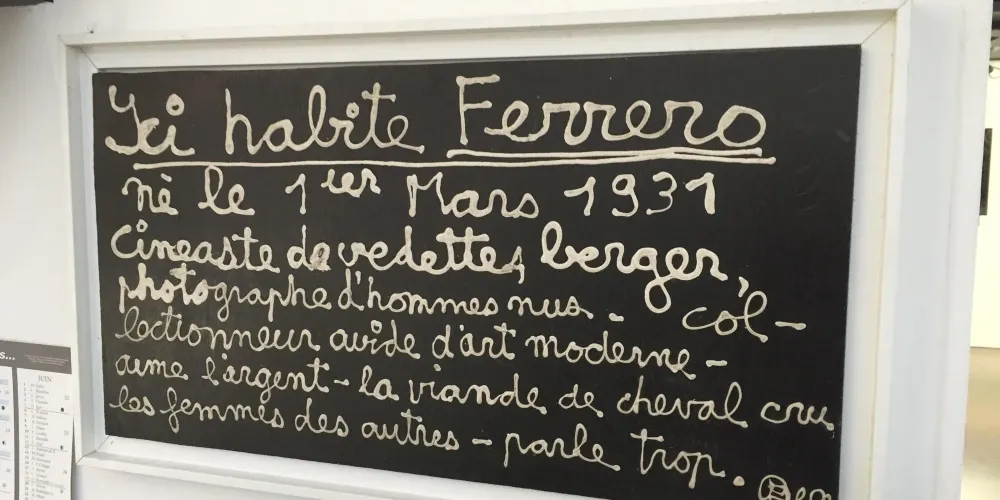 Ici habite Ferrero
né le 1ier Mars 1931
cineaste de vedettes, berger,
photographe d'hommes nus - col-
lectionneur avide d'art moderne -
aime l'argent - la viande de cheval crue
les femmes des autres - parle trop.
Ben
s...
JUIN